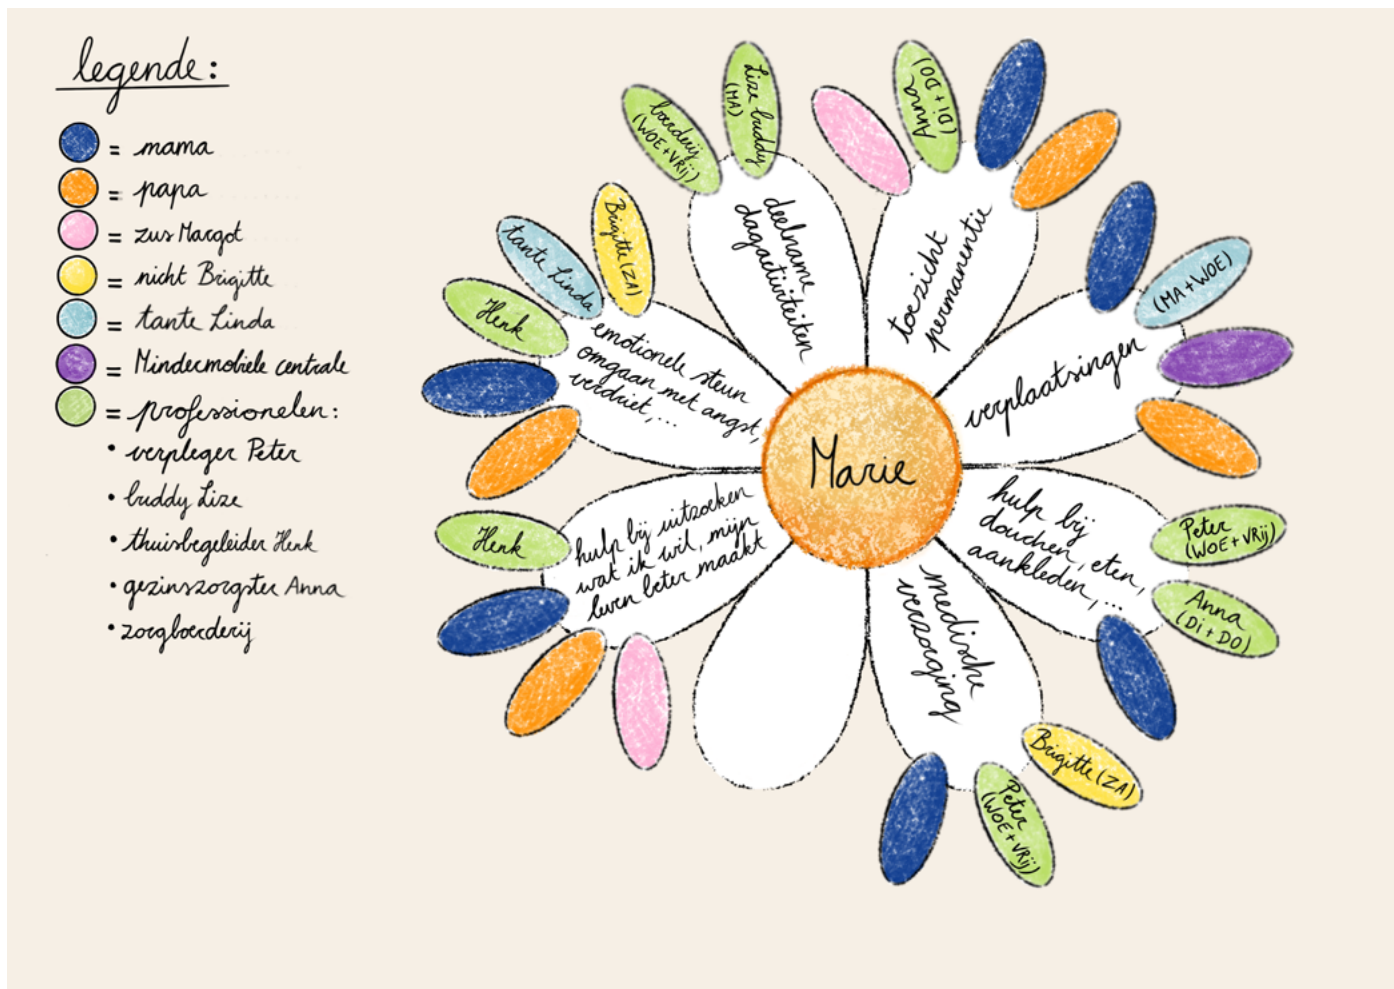 legende:
= mama
= papa
= zus Margot
= nicht Brigitte
= tante Linda
= Mindermobiele centrale
= professionelen:
• verpleger Peter
• buddy Lize
• thuisbegeleider Henk
• gezinszorgster Anna
• zorgboerderij
Marie
deelname
dagactiviteiten
boerderij
(WOE+VRIJ)
Lize buddy
(MA)
toezicht
permanentie
Anna
(DI+DO)
verplaatsingen
(MA+WOE)
hulp bij
douchen, eten,
aankleden,...
Peter
(WOE+VRIJ)
Anna
(DI+DO)
medische
verzorging
Brigitte (ZA)
Peter
(WOE+VRIJ)
hulp bij uitzoeken
wat ik wil, mijn
leven beter maakt
Henk
emotionele steun
omgaan met angst,
verdriet,...
Henk
tante Linda
Brigitte (ZA)